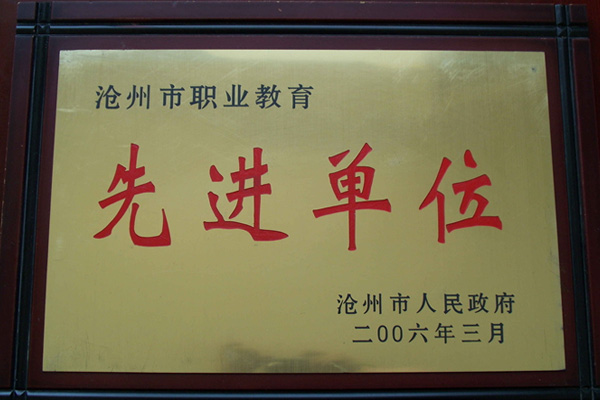 沧州市职业教育
先进单位
沧州市人民政府
二00六年三月